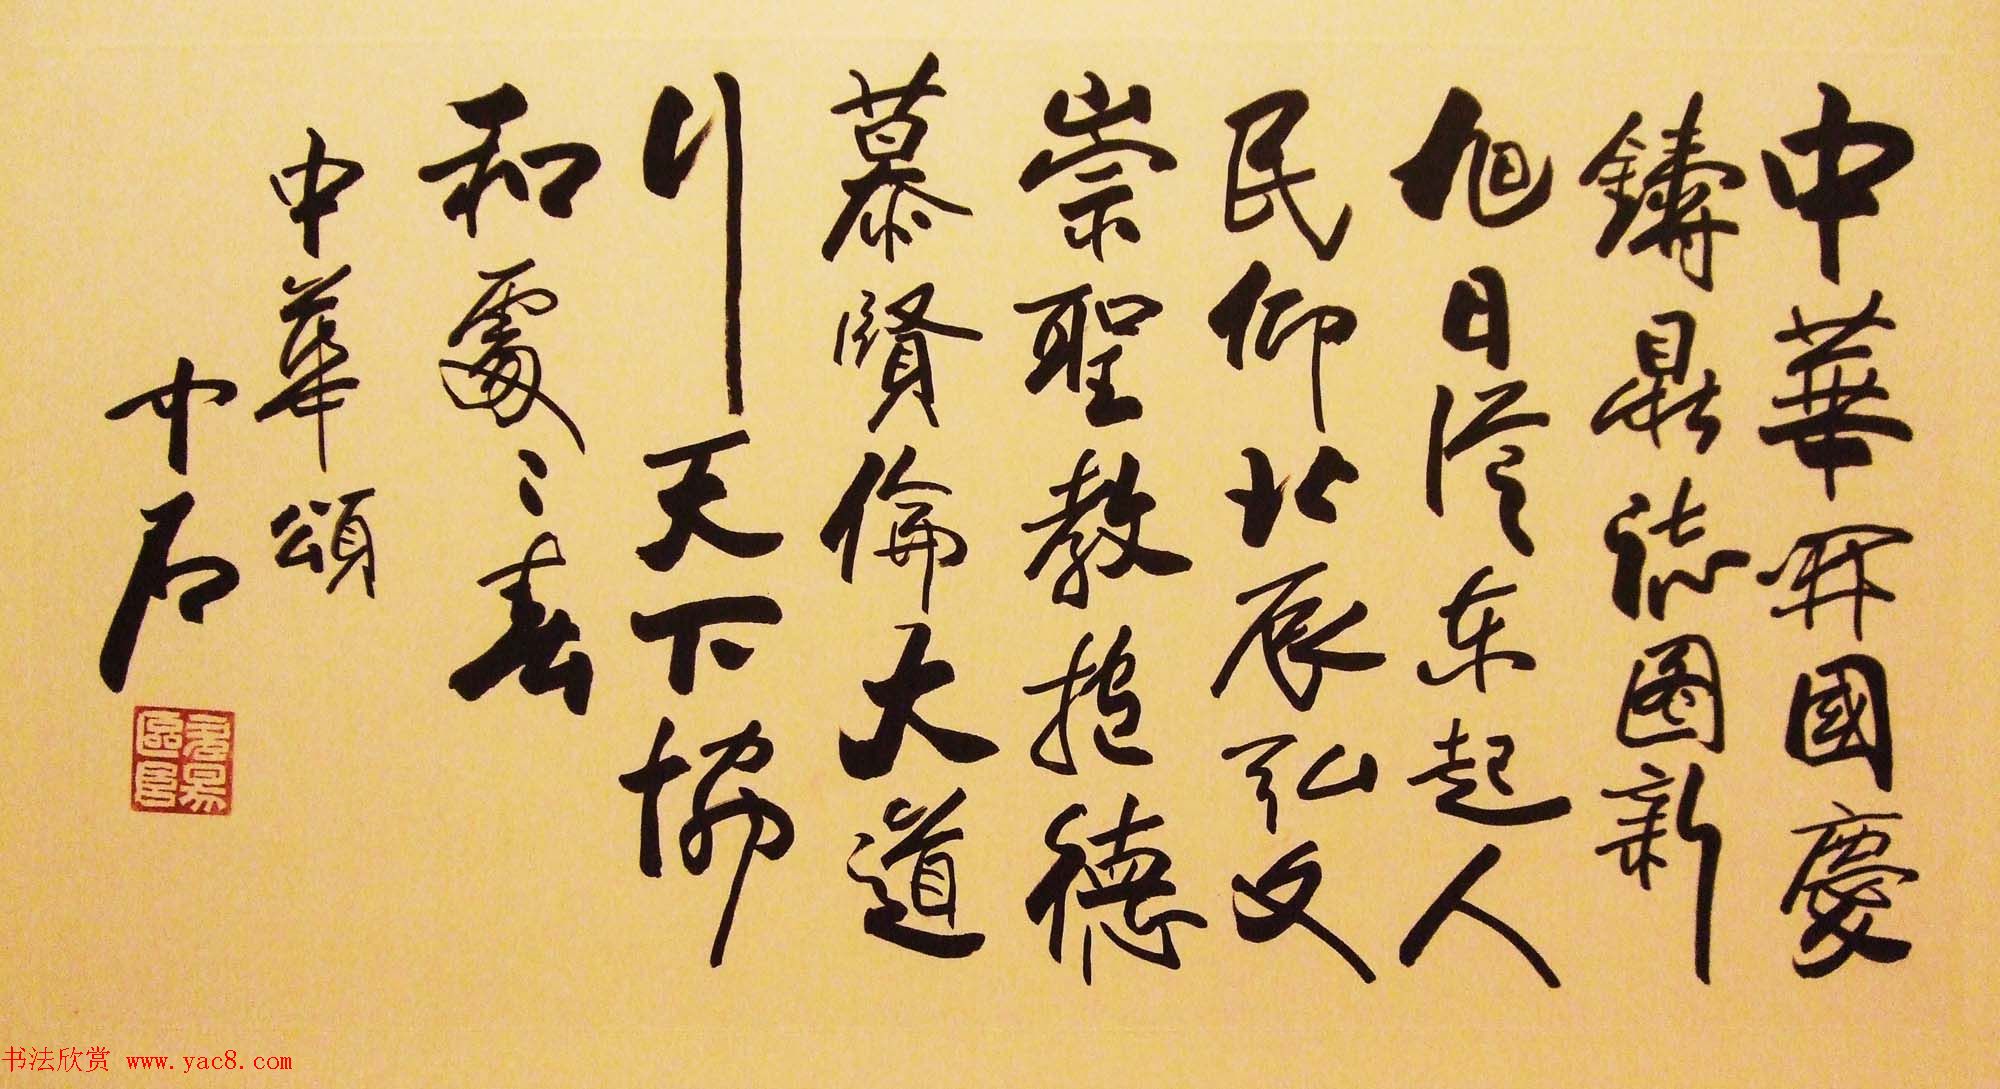 中華開國慶
鑄鼎誌圖新
旭日從東起人
民仰北辰弘文
崇聖教抱德
慕賢倫大道
行天下協
和處々春
中華頌
中石
书法欣赏 www.yac8.com